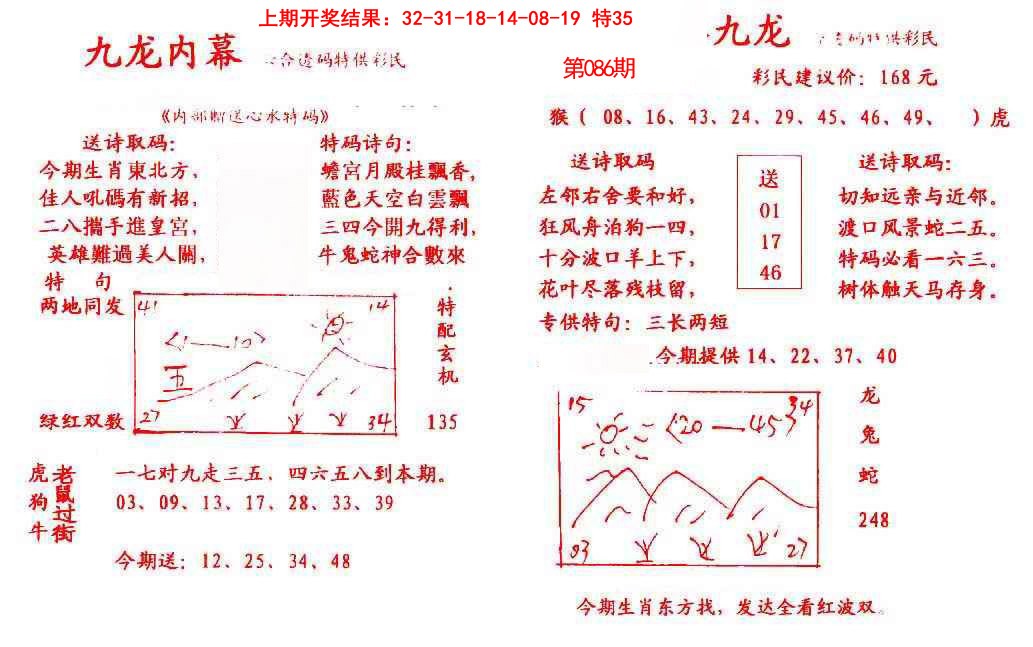 上期开奖结果：32-31-18-14-08-19 特35
九龙内幕
合透码特供彩民
《内部赠送心水特码》
送诗取码：
今期生肖東北方，
佳人吼碼有新招，
二八攜手進皇宮，
英雄難過美人關，
特 句
两地同发
绿红双数
特码诗句：
蟾宮月殿桂飄香，
藍色天空白雲飄
三四今開九得利，
牛鬼蛇神合數來
41
14
<1—10>
五
27
34
特配玄机
135
虎狗牛
老鼠过街
一七对九走三五，四六五八到本期。
03、09、13、17、28、33、39
今期送：12、25、34、48
九龙
码特供彩民
第086期
彩民建议价：168元
猴（ 08、16、43、24、29、45、46、49、 ）虎
送诗取码
左邻右舍要和好，
狂风舟泊狗一四，
十分波口羊上下，
花叶尽落残枝留，
专供特句：三长两短
送
01
17
46
送诗取码：
切知远亲与近邻。
渡口风景蛇二五。
特码必看一六三。
树体触天马存身。
今期提供14、22、37、40
15
34
<20—45>
03
27
龙
兔
蛇
248
今期生肖东方找，发达全看红波双。